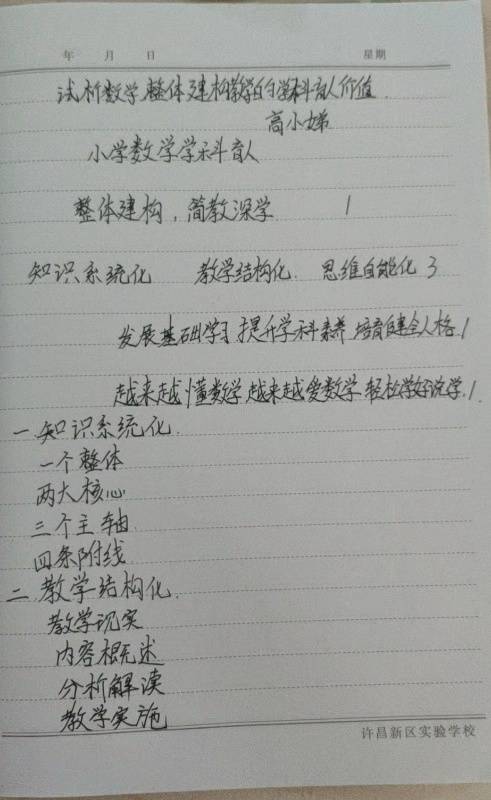 年 月 日 星期
试析数学整体建构教学的学科育人价值.
高小娣
小学数学学科育人
整体建构,简教深学 1
知识系统化 教学结构化. 思维自能化 3
发展基础学习 提升学科素养 培育健全人格.1
越来越懂数学 越来越爱数学 轻松学好数学.1.
一 知识系统化.
一个整体
两大核心
三个主轴
四条附线
二.教学结构化.
教学现实
内容概述
分析解读
教学实施
许昌新区实验学校